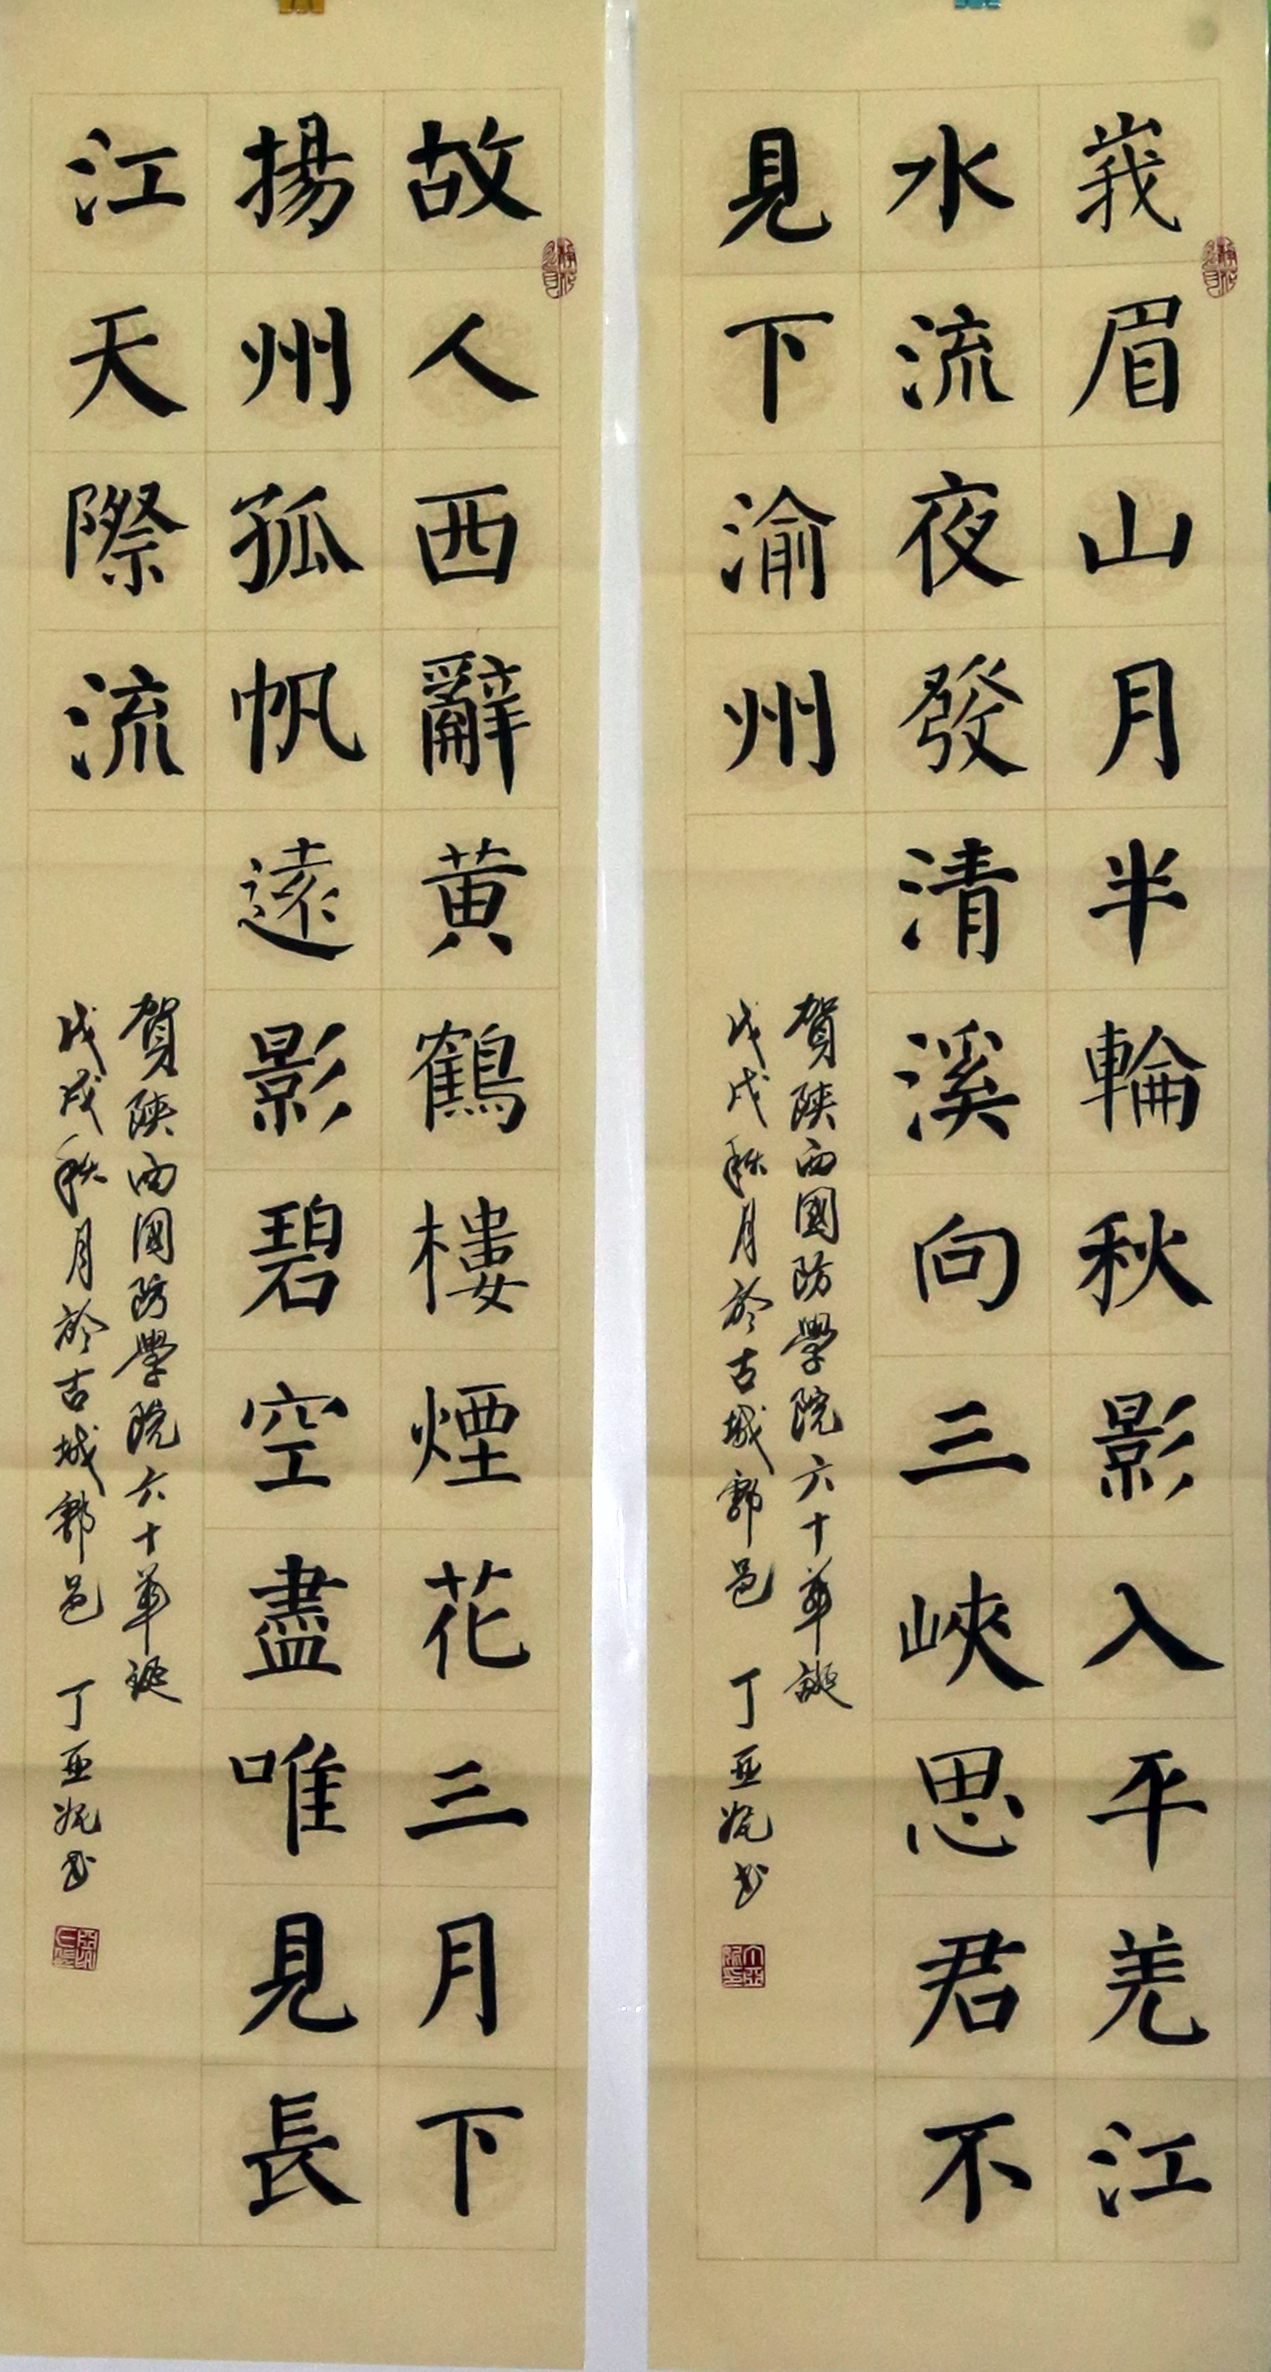 峩眉山月半輪秋影入平羌江
水流夜發清溪向三峽思君不
見下渝州
賀陝西國防學院六十華誕
戊戌秋月於古城郭邑 丁亚妮书
故人西辭黄鶴樓煙花三月下
揚州孤帆遠影碧空盡唯見長
江天際流
賀陝西國防學院六十華誕
戊戌秋月於古城郭邑 丁亚妮书